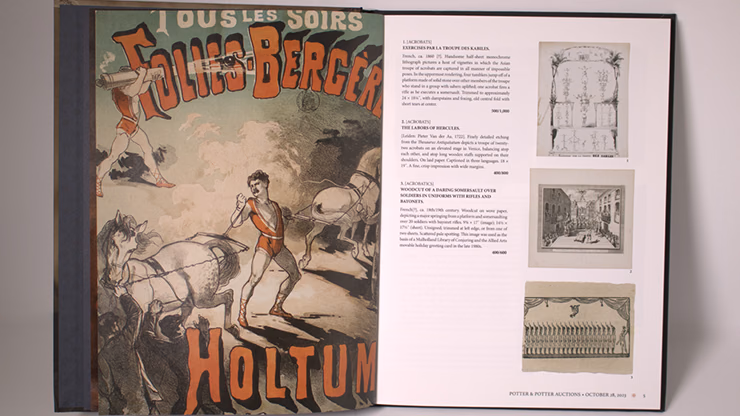 TOUS LES SOIRS
FOLIES-BERGÈRE
HOLTUM
1. [ACROBATS]
EXERCISES PAR LA TROUPE DES KABILES.
French, ca. 1860 [?]. Handsome half-sheet monochrome
lithograph pictures a host of vignettes in which the Asian
troupe of acrobats are captured in all manner of impossible
poses. In the uppermost rendering, four tumblers jump off of a
platform made of solid
who stand in a group with sabers uplifted; one acrobat fires a
rifle as he executes a somersault. Trimmed to approximately
short tears at center.
500/1,000
2. [ACROBATS]
THE LABORS OF HERCULES.
[Leiden: Pieter Van der Aa, 1722]. Finely detailed etching
from the Thesaurus Antiquitatum depicts a troupe of twenty-
two acrobats on an elevated stage in Venice, balancing atop
each other, and atop long wooden staffs supported on their
shoulders. On laid paper. Captioned in three languages.
A fine, crisp impression with wide margins.
400/600
3. [ACROBATICS].
WOODCUT OF A DARING SOMERSAULT OVER
SOLDIERS IN UNIFORMS WITH RIFLES AND
BAYONETS.
French[?], ca. 18th/19th century. Woodcut on wove paper,
depicting a major springing from a platform and somersaulting
over 20 soldiers with bayonet rifles.
Unsigned; trimmed at left edge, or from one of
two sheets. Scattered pale spotting. This image was used as the
basis of a Mulholland Library of Conjuring and the Allied Arts
movable holiday greeting card in the late-1980s.
400/600
1
2
3
POTTER & POTTER AUCTIONS • OCTOBER 28, 2023